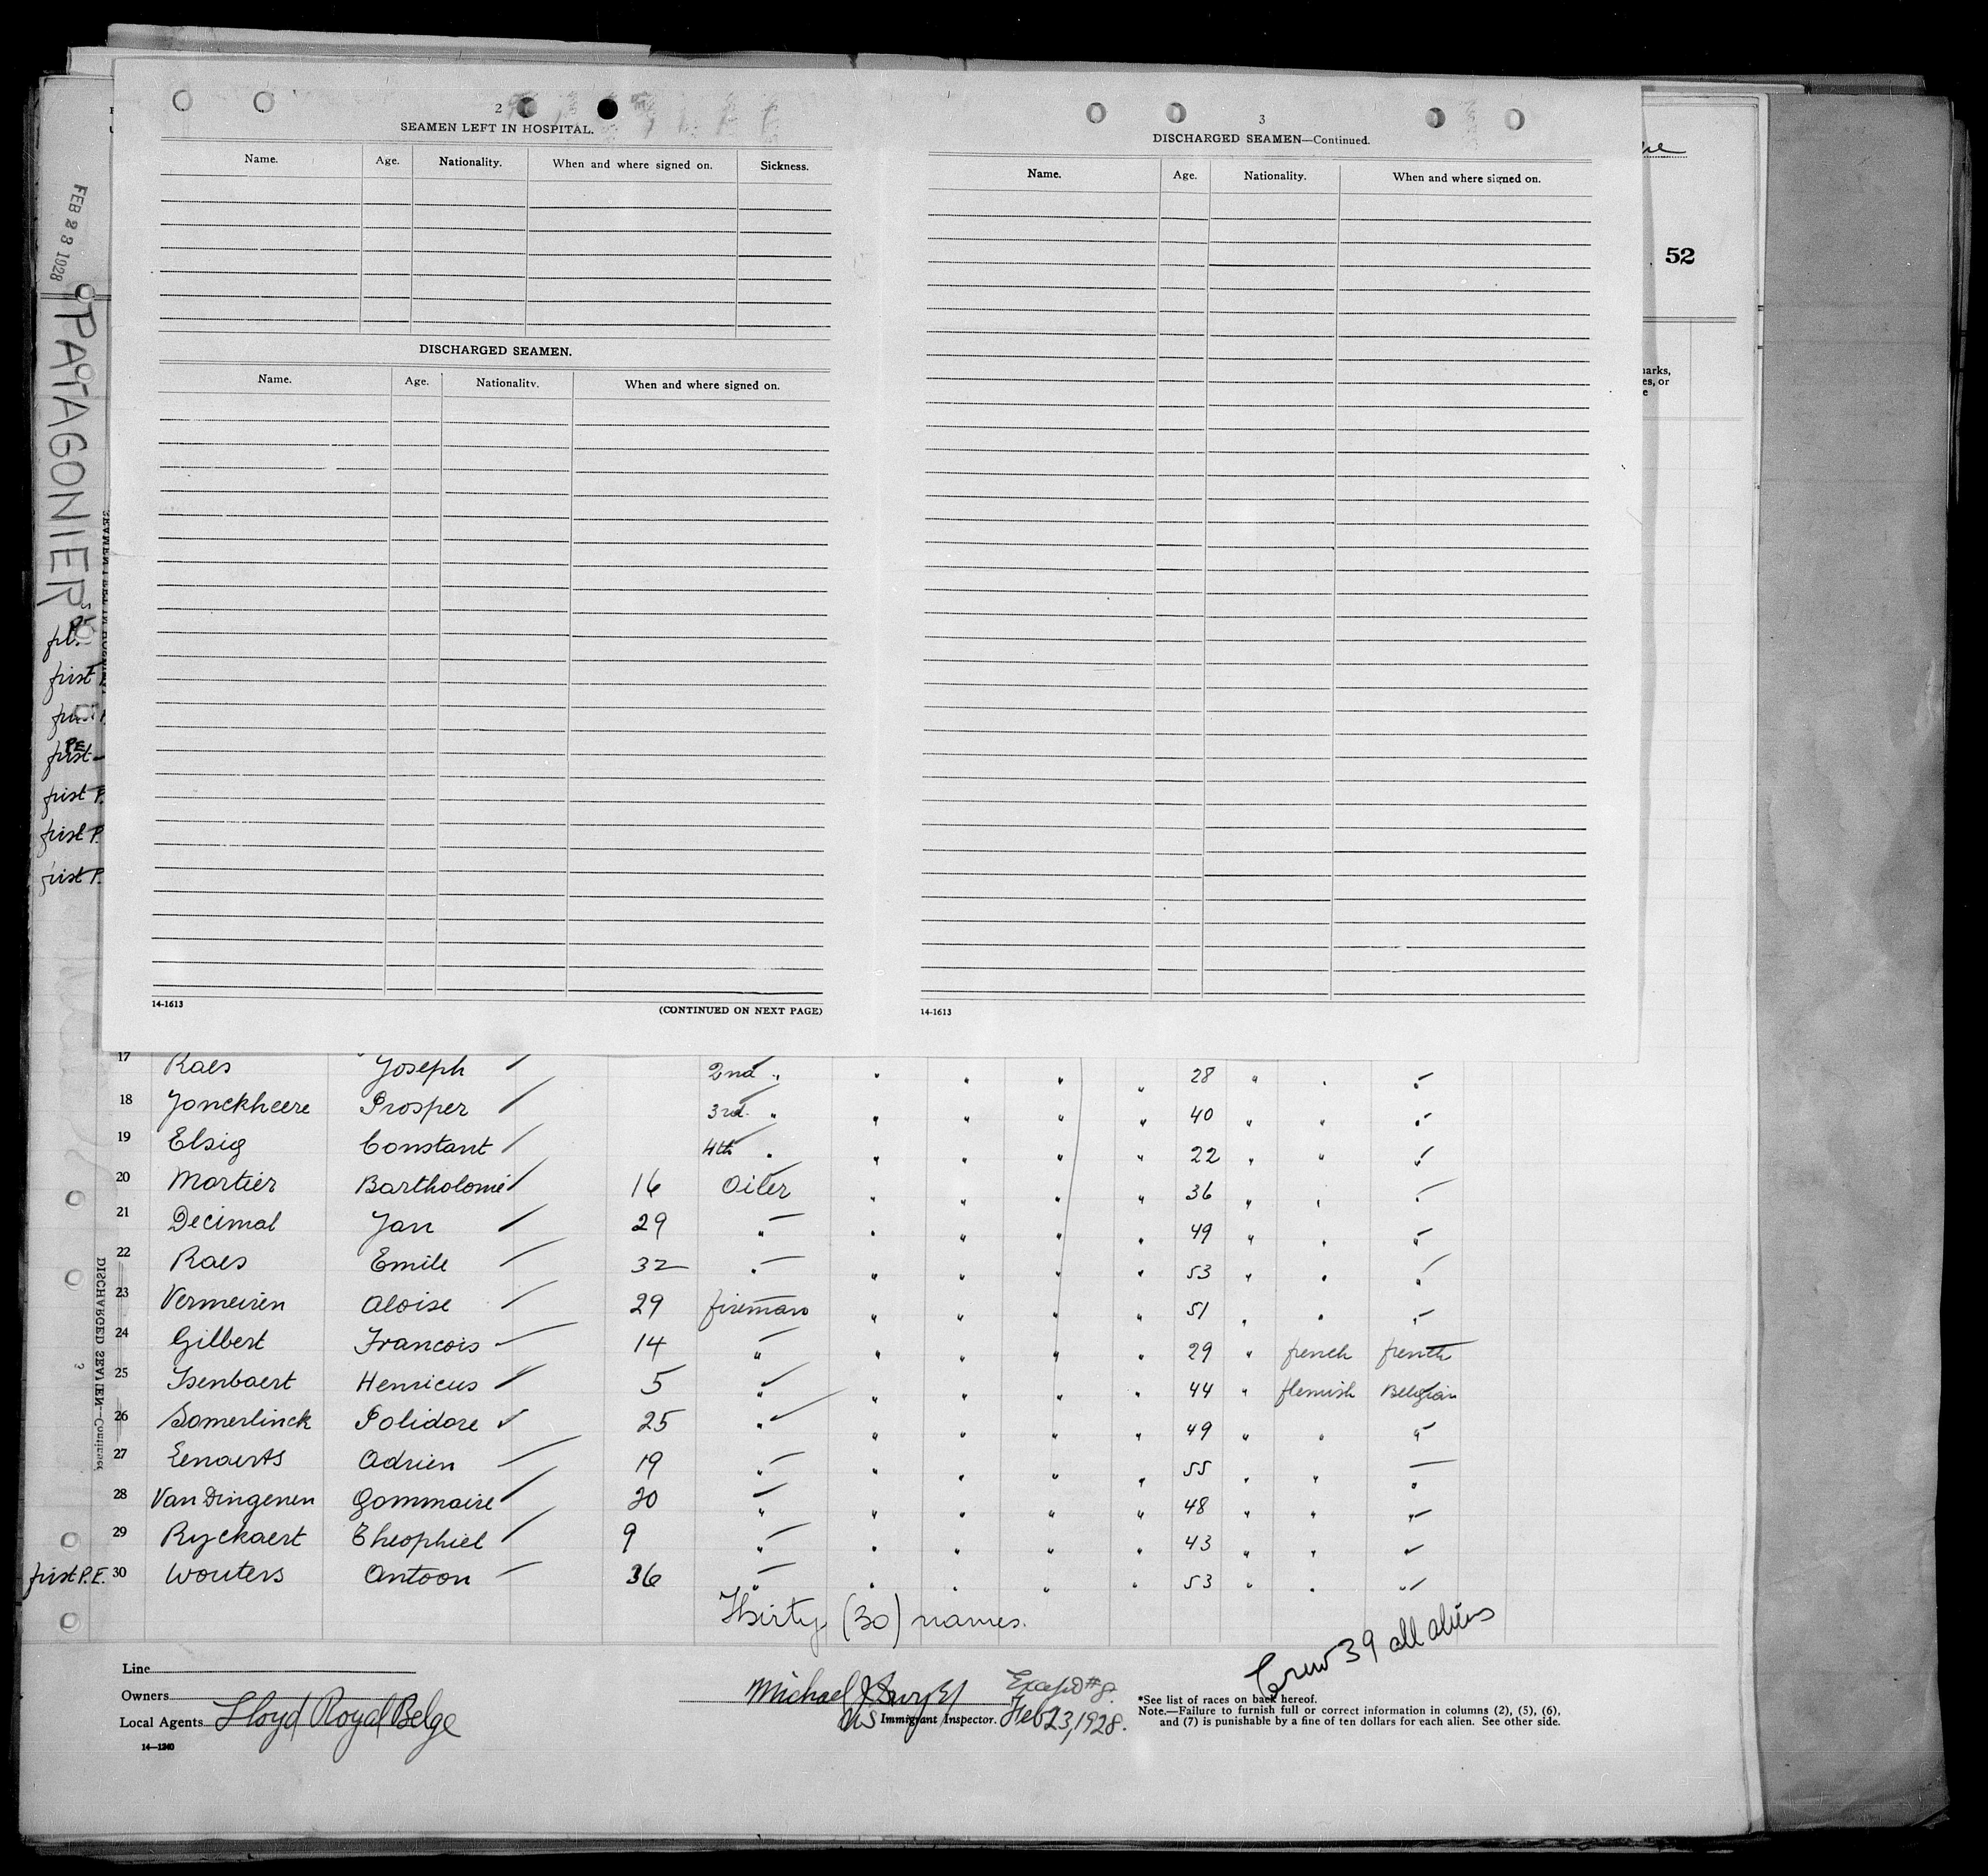 2
SEAMEN LEFT IN HOSPITAL.
Name. Age. Nationality. When and where signed on. Sickness.
DISCHARGED SEAMEN.
Name. Age. Nationality. When and where signed on.
14-1613 (CONTINUED ON NEXT PAGE)
3
DISCHARGED SEAMEN—Continued.
Name. Age. Nationality. When and where signed on.
14-1613
52
FEB 23 1928
PATAGONIER
first
first
first P.
first P.
first P.
17 Raes Joseph 2nd " " " " " 28 " " "
18 Jonckheere Prosper 3rd " " " " " 40 " " "
19 Elsig Constant 4th " " " " " 22 " " "
20 Mortier Bartholomé 16 Oiler " " " " 36 " " "
21 Decimal Jan 29 " " " " " 49 " " "
22 Raes Emile 32 " " " " " 53 " " "
23 Vermeiren Aloise 29 fireman " " " " 51 " " "
24 Gilbert Francois 14 " " " " " 29 " french french
25 Isenbaert Henricus 5 " " " " " 44 " flemish Belgian
26 Somerlinck Polidore 25 " " " " " 49 " " "
27 Lenaerts Adrien 19 " " " " " 55 " " "
28 Van Dingenen Gommaire 20 " " " " " 48 " " "
29 Ryckaert Theophiel 9 " " " " " 43 " " "
first P.E. 30 Wouters Antoon 36 " " " " " 53 " " "
Thirty (30) names.
Crew 39 all aliens
Line
Owners
Local Agents Lloyd Royal Belge
14—1240
Michael J.
US Immigrant Inspector. Feb 23, 1928.
*See list of races on back hereof.
Note.—Failure to furnish full or correct information in columns (2), (5), (6),
and (7) is punishable by a fine of ten dollars for each alien. See other side.